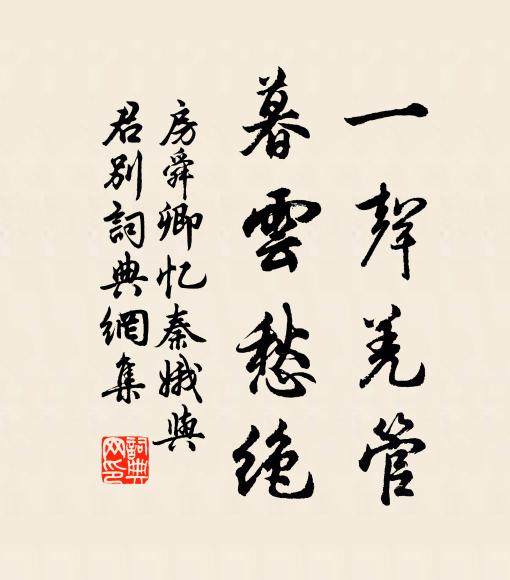 一聲羌管
暮雲愁絶
房舜卿忆秦娥與
君别詞典網集
詞典網印